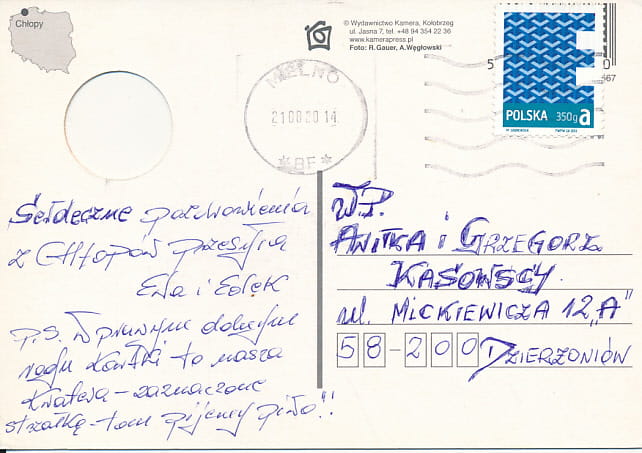 Chłopy
© Wydawnictwo Kamera, Kołobrzeg
ul. Jasna 7, tel. +48 94 354 22 36
www.kamerapress.pl
Foto: R.Gauer, A.Węglowski
MIELNO
210820.14
*BF*
5
0
467
POLSKA 350g a
Serdeczne pozdrowienia
z Chłopów przesyła
Ewa i Bolek
P.S. W prawym dolnym
rogu kartki to nasza
kwatera - zaznaczone
strzałką - tam pijemy piwo"!
W.P.
ANITKA i GRZEGORZ
KASOWSCY
ul. MICKIEWICZA 12 „A"
58-200 DZIERŻONIÓW